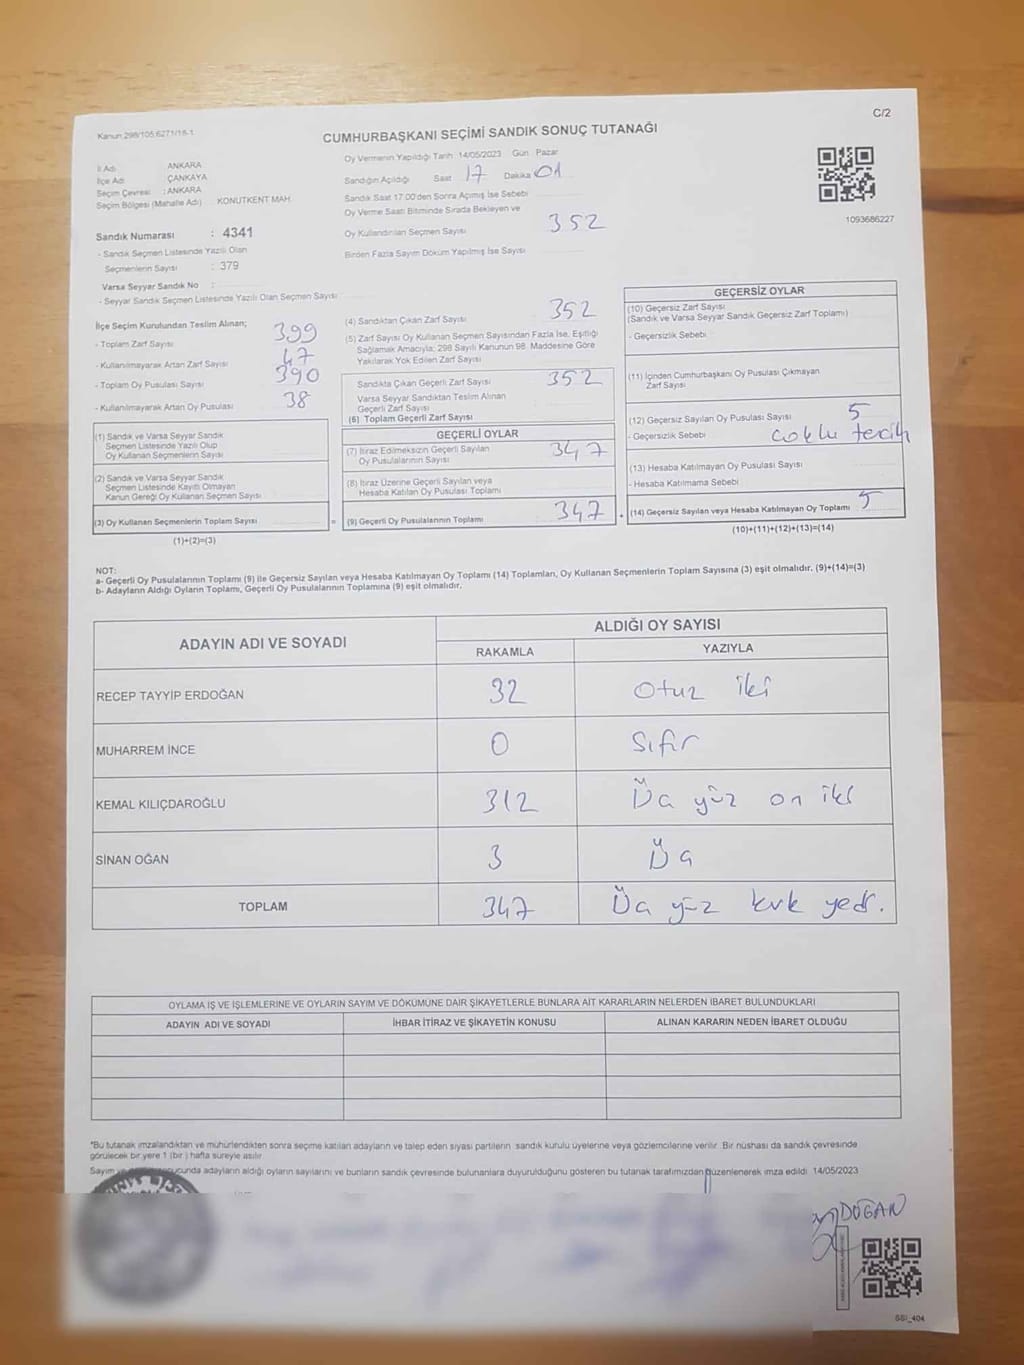 Kanun 298/105,6271/18-1
C/2
CUMHURBAŞKANI SEÇİMİ SANDIK SONUÇ TUTANAĞI
İl Adı ANKARA
İlçe Adı ÇANKAYA
Seçim Çevresi : ANKARA
Seçim Bölgesi (Mahalle Adı) KONUTKENT MAH.
Oy Vermenin Yapıldığı Tarih 14/05/2023 Gün Pazar
Sandığın Açıldığı Saat 17 Dakika 01
Sandık Saat 17.00'den Sonra Açılmış İse Sebebi
Oy Verme Saati Bitiminde Sırada Bekleyen ve
Oy Kullandırılan Seçmen Sayısı 352
Birden Fazla Sayım Döküm Yapılmış İse Sayısı
1093686227
Sandık Numarası : 4341
- Sandık Seçmen Listesinde Yazılı Olan
Seçmenlerin Sayısı : 379
Varsa Seyyar Sandık No :
- Seyyar Sandık Seçmen Listesinde Yazılı Olan Seçmen Sayısı
İlçe Seçim Kurulundan Teslim Alınan;
- Toplam Zarf Sayısı 399
- Kullanılmayarak Artan Zarf Sayısı 47
- Toplam Oy Pusulası Sayısı 390
- Kullanılmayarak Artan Oy Pusulası 38
(1) Sandık ve Varsa Seyyar Sandık
Seçmen Listesinde Yazılı Olup
Oy Kullanan Seçmenlerin Sayısı
(2) Sandık ve Varsa Seyyar Sandık
Seçmen Listesinde Kayıtlı Olmayan
Kanun Gereği Oy Kullanan Seçmen Sayısı
(3) Oy Kullanan Seçmenlerin Toplam Sayısı
(1)+(2)=(3)
(4) Sandıktan Çıkan Zarf Sayısı 352
(5) Zarf Sayısı Oy Kullanan Seçmen Sayısından Fazla İse, Eşitliği
Sağlamak Amacıyla; 298 Sayılı Kanunun 98. Maddesine Göre
Yakılarak Yok Edilen Zarf Sayısı
Sandıkta Çıkan Geçerli Zarf Sayısı 352
Varsa Seyyar Sandıktan Teslim Alınan
Geçerli Zarf Sayısı
(6) Toplam Geçerli Zarf Sayısı
GEÇERLİ OYLAR
(7) İtiraz Edilmeksizin Geçerli Sayılan
Oy Pusulalarının Sayısı 347
(8) İtiraz Üzerine Geçerli Sayılan veya
Hesaba Katılan Oy Pusulası Toplamı
= (9) Geçerli Oy Pusulalarının Toplamı 347
GEÇERSİZ OYLAR
(10) Geçersiz Zarf Sayısı
(Sandık ve Varsa Seyyar Sandık Geçersiz Zarf Toplamı)
- Geçersizlik Sebebi
(11) İçinden Cumhurbaşkanı Oy Pusulası Çıkmayan
Zarf Sayısı
(12) Geçersiz Sayılan Oy Pusulası Sayısı 5
- Geçersizlik Sebebi çoklu tercih
(13) Hesaba Katılmayan Oy Pusulası Sayısı
- Hesaba Katılmama Sebebi
(14) Geçersiz Sayılan veya Hesaba Katılmayan Oy Toplamı 5
(10)+(11)+(12)+(13)=(14)
NOT:
a- Geçerli Oy Pusulalarının Toplamı (9) ile Geçersiz Sayılan veya Hesaba Katılmayan Oy Toplamı (14) Toplamları, Oy Kullanan Seçmenlerin Toplam Sayısına (3) eşit olmalıdır. (9)+(14)=(3)
b- Adayların Aldığı Oyların Toplamı, Geçerli Oy Pusulalarının Toplamına (9) eşit olmalıdır.
ADAYIN ADI VE SOYADI
ALDIĞI OY SAYISI
RAKAMLA YAZIYLA
RECEP TAYYİP ERDOĞAN 32 Otuz iki
MUHARREM İNCE 0 Sıfır
KEMAL KILIÇDAROĞLU 312 Üç yüz on iki
SİNAN OĞAN 3 Üç
TOPLAM 347 Üç yüz kırk yedi.
OYLAMA İŞ VE İŞLEMLERİNE VE OYLARIN SAYIM VE DÖKÜMÜNE DAİR ŞİKAYETLERLE BUNLARA AİT KARARLARIN NELERDEN İBARET BULUNDUKLARI
ADAYIN ADI VE SOYADI İHBAR İTİRAZ VE ŞİKAYETİN KONUSU ALINAN KARARIN NEDEN İBARET OLDUĞU
"Bu tutanak imzalandıktan ve mühürlendikten sonra seçime katılan adayların ve talep eden siyasi partilerin sandık kurulu üyelerine veya gözlemcilerine verilir. Bir nüshası da sandık çevresinde
görülecek bir yere 1 (bir) hafta süreyle asılır.
Sayım ve adayların aldığı oyların sayılarını ve bunların sandık çevresinde bulunanlara duyurulduğunu gösteren bu tutanak tarafımızdan düzenlenerek imza edildi 14/05/2023
DOĞAN
SSI_404